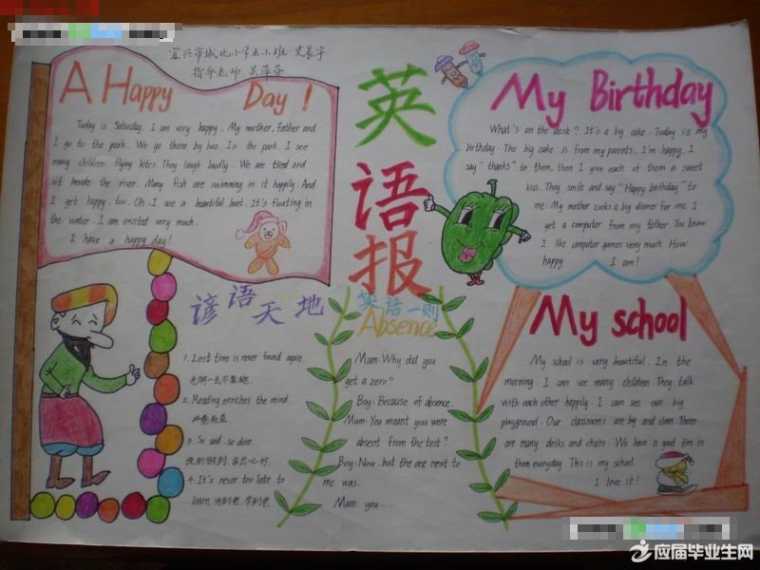 宜兴市城北小学
指导老师
A Happy Day!
Today is Saturday. I am very happy. My mother, father and
I go to the park. We go there by bus. In the park, I see
many children flying kites. They laugh loudly. We are tired and
sit beside the river. Many fish are swimming in it happily. And
I get happy, too. Oh, I see a beautiful boat. It's floating in
the water. I am excited very much.
I have a happy day!
英
语
报
My Birthday
What's on the desk? It's a big cake. Today is my
birthday. The big cake is from my parents. I'm happy. I
say "thanks" to them, then I give each of them a sweet
kiss. They smile and say "Happy birthday" to
me. My mother cooks a big dinner for me. I
get a computer from my father. You know
I like computer games very much. How
happy I am!
谚语天地
1. Lost time is never found again.
2. Reading enriches the mind.
3. So said, so done.
4. It's never too late to
learn.
英语一则
Absence
Mam: Why did you
get a zero?
Boy: Because of absence.
Mum: You meant you were
absent from the test?
Boy: No, but the one next to
me was.
Mam: you....
My school
My school is very beautiful. In the
morning I can see many children. They talk
with each other happily. I can see our big
playground. Our classrooms are big and clean. There
are many desks and chairs. We have a good time in
them everyday. This is my school.
I love it!
应届毕业生网